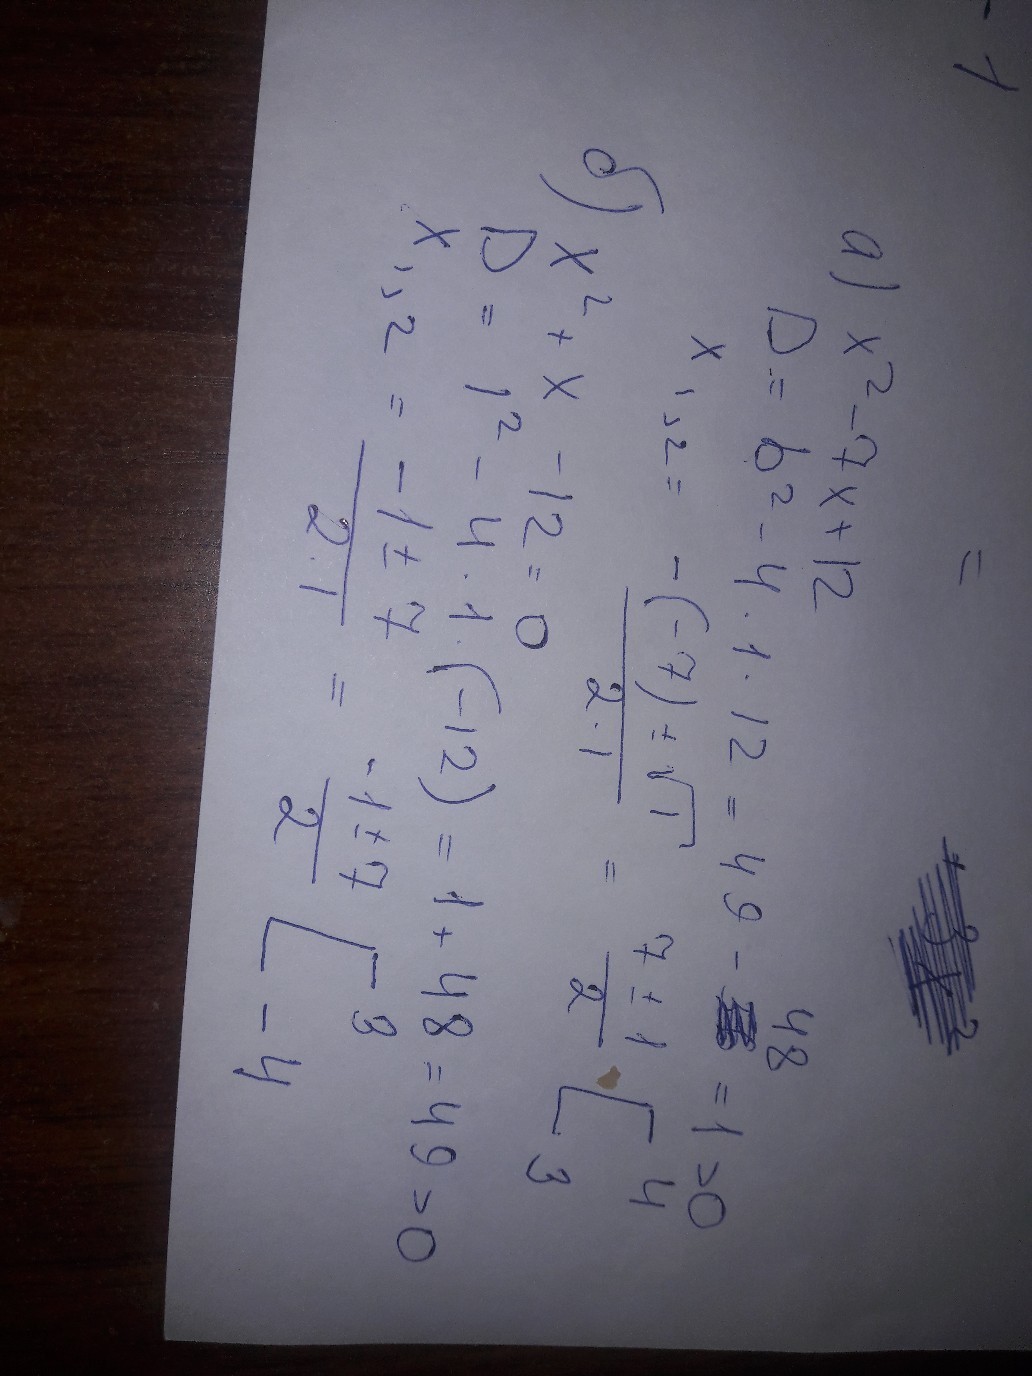 - 1
=
а) x² - 7x + 12
D = b² - 4 · 1 · 12 = 49 - 48 = 1 > 0
x₁,₂ = -(-7) ± √1 / 2 · 1 = 7 ± 1 / 2 [ 4 3
б) x² + x - 12 = 0
D = 1² - 4 · 1 · (-12) = 1 + 48 = 49 > 0
x₁,₂ = -1 ± 7 / 2 · 1 = -1 ± 7 / 2 [ 3 -4